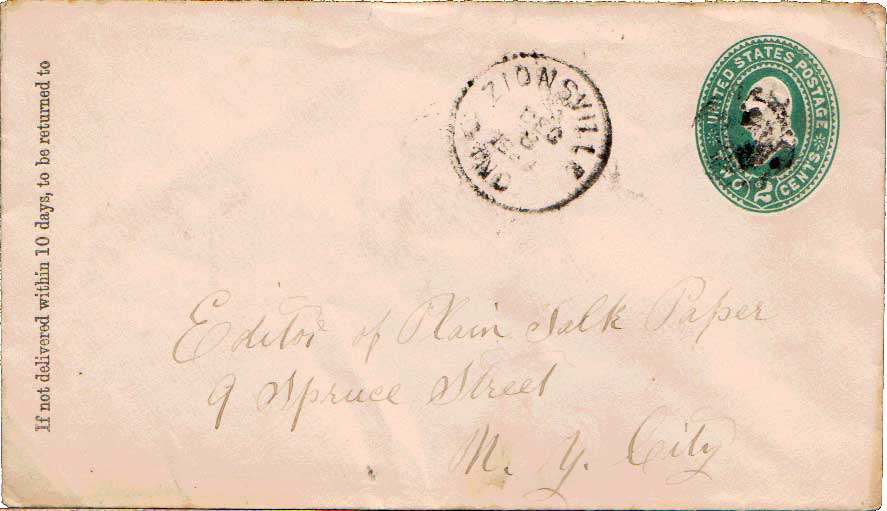 If not delivered within 10 days, to be returned to
ZIONSVILLE
IND.
DEC
UNITED STATES POSTAGE
TWO 2 CENTS
Editor of Plain Talk Paper
9 Spruce Street
N. Y. City